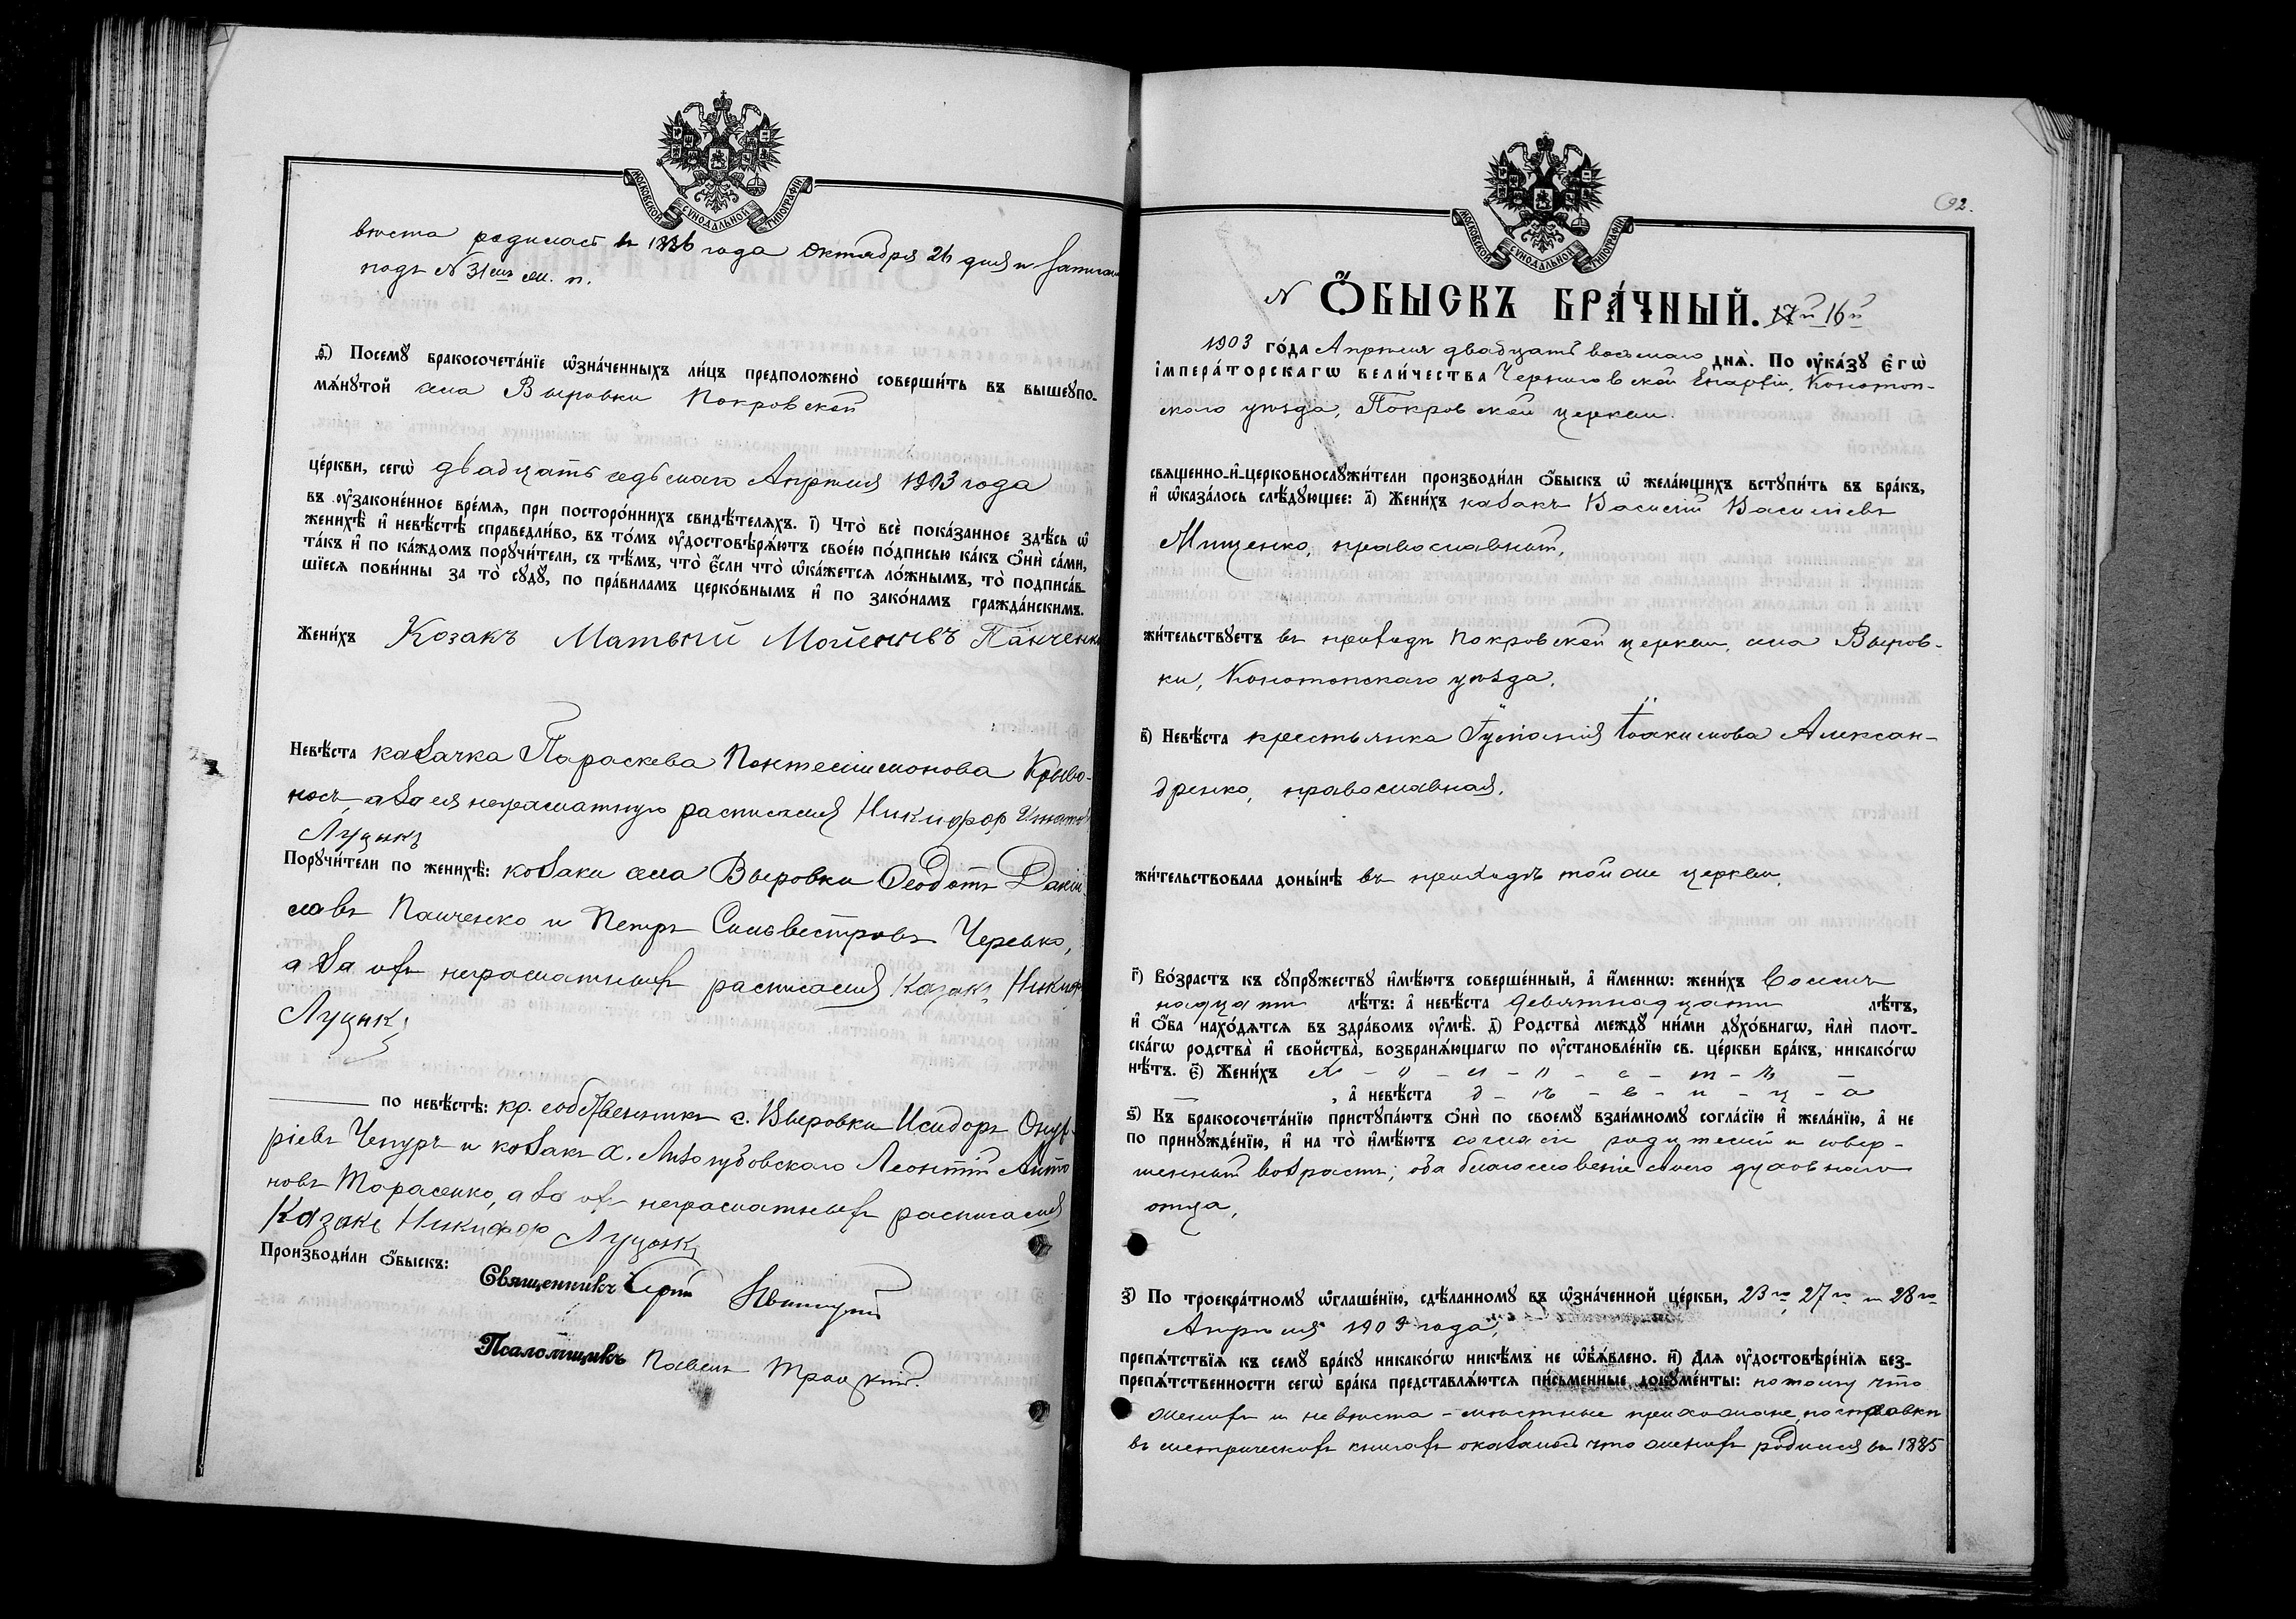 МОСКОВСКОЙ СѴНОДАЛЬНОЙ ТИПОГРАФІИ
вѣста родилась въ 1886 года Октября 26 дня и записана
подъ № 31мъ ж. п.
ѳ҃) Посемꙋ̀ бракосочета́нїе ѡ҆зна́ченныхъ ли́цъ предположено̀ соверши́ть въ вышеꙋпо-
мѧ́нꙋтой села Выровки Покровской
це́ркви, сегѡ̀ двадцать седьмаго Апрѣля 1903 года
въ ᲂу҆законе́нное вре́мѧ, при посторо́ннихъ свидѣ́телѧхъ. і҃) Что̀ всѐ пока́занное здѣ́сь ѡ҆
женихѣ̀ и҆ невѣ́стѣ справедли́во, въ то́мъ ᲂу҆достовѣрѧ́ютъ свое́ю по́дписью ка́къ ѻ҆нѝ са́ми,
та́къ и҆ по ка́ждомъ порꙋчи́тели, съ тѣ́мъ, что̀ є҆́сли что̀ ѡ҆ка́жетсѧ ло́жнымъ, то̀ подписа́в-
шїесѧ пови́нны за то̀ сꙋдꙋ̀, по пра́виламъ церко́внымъ и҆ по зако́намъ гражда́нскимъ.
Жени́хъ Козакъ Матвѣй Мойсеевъ Панченко
Невѣ́ста казачка Параскева Пантелиимонова Криво-
носъ, а за ея неграмотную расписался Никифор Игнатов
Луцыкъ
Порꙋчи́тели по женихѣ̀: козаки села Выровки Ѳеодотъ Даніи-
ловъ Панченко и Петръ Сильвестровъ Черевко,
а за ихъ неграмотныхъ расписался Казакъ Никифор
Луцыкъ
по невѣ́стѣ: кр. собственникъ с. Выровки Исидоръ Онуф-
ріевъ Чепуръ и козакъ х. Лизогубовскаго Леонтій Анто-
новъ Тарасенко, а за ихъ неграмотныхъ расписался
Казакъ Никифор Луцыкъ
Производи́ли ѻ҆́быскъ:
Священникъ Сергій
Псаломщикъ Павелъ Троцкій.
92.
МОСКОВСКОЙ СѴНОДАЛЬНОЙ ТИПОГРАФІИ
№ Ѻ҆́БЫСКЪ БРА́ЧНЫЙ. 17й 16й
1903 го́да Апрѣля двадцать восьмаго днѧ̀. По ᲂу҆ка́зꙋ Є҆гѡ̀
І҆мпера́торскагѡ Вели́чества Черниговской Епархіи, Конотоп-
скаго уѣзда, Покровской церкви
свѧще́нно-и҆-церковнослꙋжи́тели производи́ли ѻ҆́быскъ ѡ҆ жела́ющихъ встꙋпи́ть въ бра́къ,
и҆ ѡ҆каза́лось слѣ́дꙋющее: а҃) Жени́хъ казакъ Василій Васильевъ
Мищенко, православный,
жи́тельствꙋетъ въ приходѣ Покровской церкви, села Выров-
ки, Конотопскаго уѣзда.
в҃) Невѣ́ста крестьянка Іуліанія Іоакимова Алексан-
дренко, православная,
жи́тельствовала доны́нѣ въ приходѣ той же церкви,
г҃) Во́зрастъ къ сꙋпрꙋ́жествꙋ и҆мѣ́ютъ соверше́нный, а҆ и҆́меннѡ: жени́хъ восем-
надцати лѣ́тъ: а҆ невѣ́ста девятнадцати лѣ́тъ,
и҆ ѻ҆́ба нахо́дѧтсѧ въ здра́вомъ ᲂу҆мѣ̀. д҃) Родства̀ междꙋ̀ ни́ми дꙋхо́внагѡ, и҆лѝ плот-
ска́гѡ родства̀ и҆ сво́йства, возбранѧ́ющагѡ по ᲂу҆становле́нїю св. це́ркви бра́къ, никако́гѡ
нѣ́тъ. є҃) Жени́хъ х - о - л - о - с - т - ъ -
, а҆ невѣ́ста д - ѣ - в - и - ц - а
ѕ҃) Къ бракосочета́нїю пристꙋпа́ютъ ѻ҆нѝ по своемꙋ̀ взаи́мномꙋ согла́сїю и҆ жела́нїю, а҆ не
по принꙋжде́нїю, и҆ на то̀ и҆мѣ́ютъ согласіе родителей и совер-
шенный возрастъ; оба благословеніе своего духовнаго
отца,
з҃) По троекра́тномꙋ ѡ҆глаше́нїю, сдѣ́ланномꙋ въ ѡ҆зна́ченной це́ркви, 23го, 27го и 28го
Апрѣля 1903 года,
препѧ́тствїѧ къ семꙋ̀ бра́кꙋ никако́гѡ никѣ́мъ не ѡ҆б̾ѧ́влено. и҃) Длѧ ᲂу҆достовѣре́нїѧ без-
препѧ́тственности сегѡ̀ бра́ка представлѧ́ютсѧ пи́сьменные докꙋме́нты: потому что
женихъ и невѣста - мѣстные прихожане, по справкѣ
въ метрическихъ книгахъ оказалось что женихъ родился въ 1885